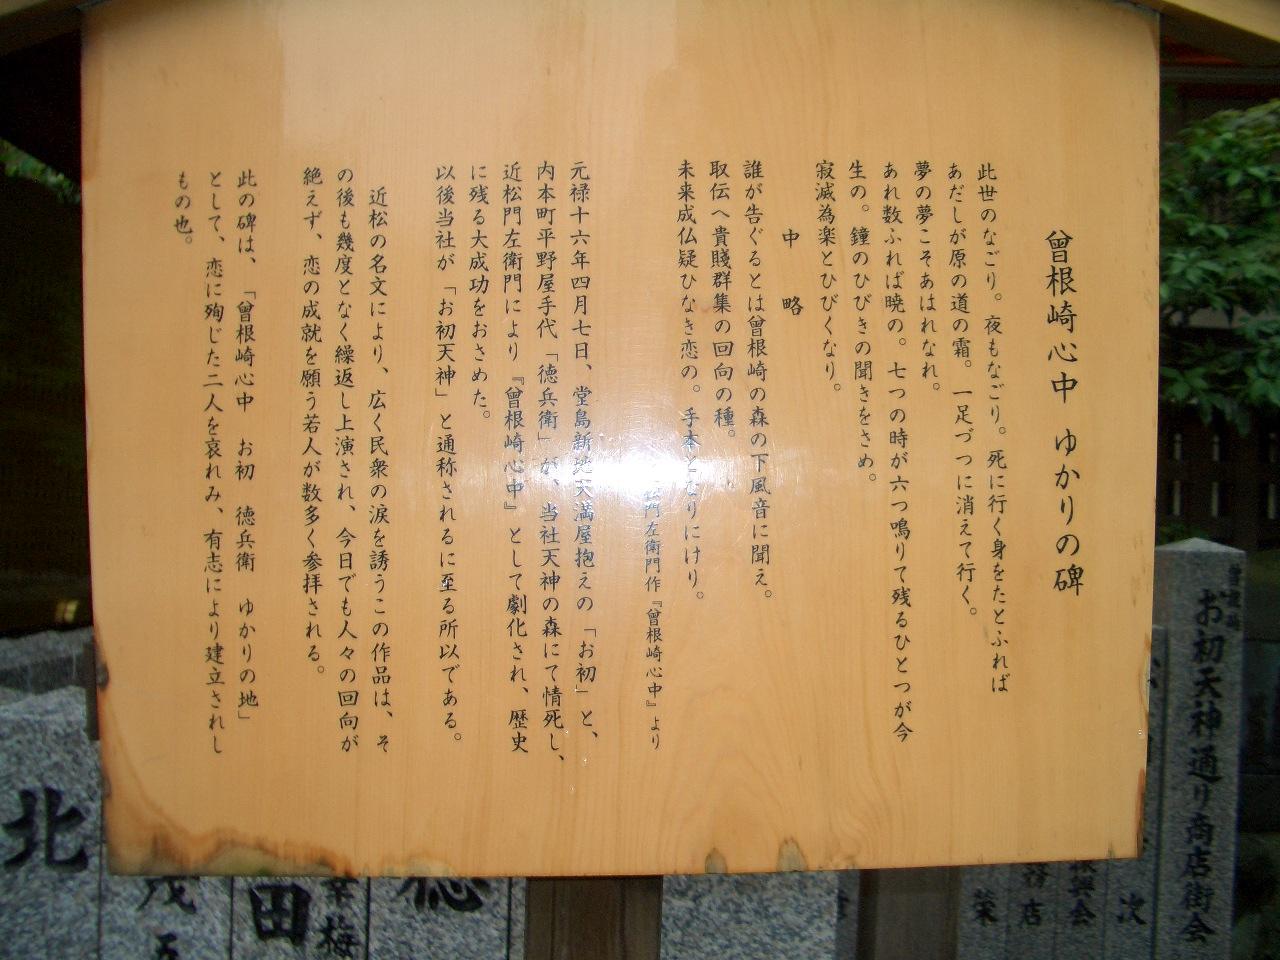 曾根崎心中 ゆかりの碑
此世のなごり。夜もなごり。死に行く身をたとふれば
あだしが原の道の霜。一足づつに消えて行く。
夢の夢こそあはれなれ。
あれ数ふれば暁の。七つの時が六つ鳴りて残るひとつが今
生の。鐘のひびきの聞きをさめ。
寂滅為楽とひびくなり。
中 略
誰が告ぐるとは曾根崎の森の下風音に聞え。
取伝へ貴賤群集の回向の種。
未来成仏疑ひなき恋の。手本となりにけり。
門左衛門作『曾根崎心中』より
元禄十六年四月七日、堂島新地天満屋抱えの「お初」と、
内本町平野屋手代「徳兵衛」が、当社天神の森にて情死し、
近松門左衛門により『曾根崎心中』として劇化され、歴史
に残る大成功をおさめた。
以後当社が「お初天神」と通称されるに至る所以である。
近松の名文により、広く民衆の涙を誘うこの作品は、そ
の後も幾度となく繰返し上演され、今日でも人々の回向が
絶えず、恋の成就を願う若人が数多く参拝される。
此の碑は、「曾根崎心中 お初 徳兵衛 ゆかりの地」
として、恋に殉じた二人を哀れみ、有志により建立されし
もの也。
お初天神通り商店街会
次
振興会
務店
栄
徳
梅
田
茂
北